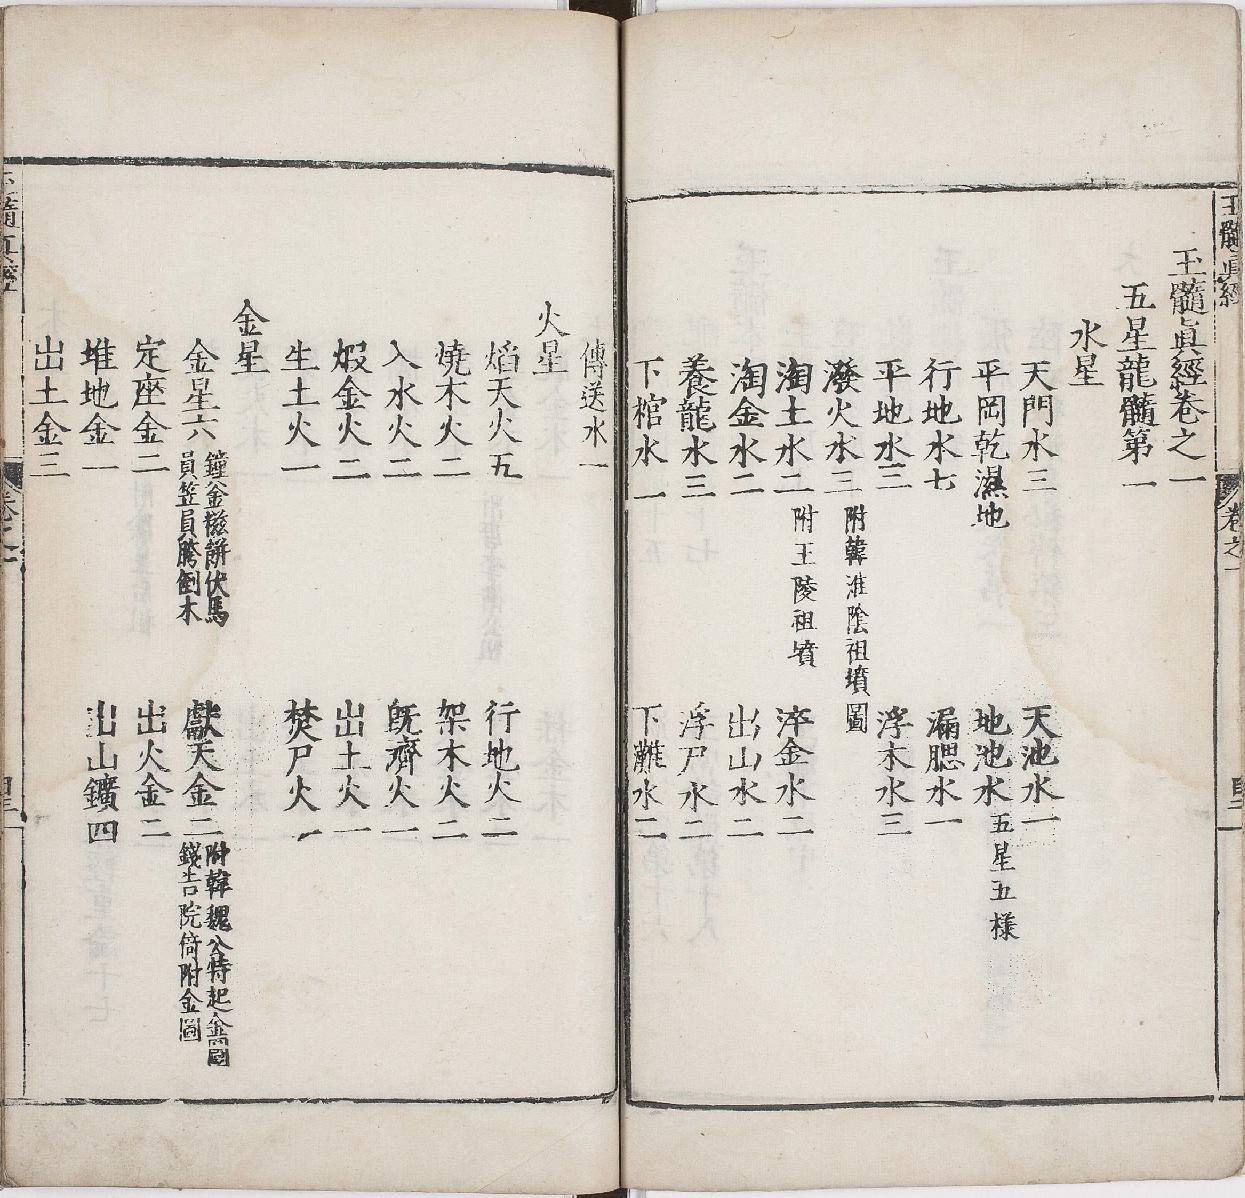 玉髓眞經卷之一
五星龍髓第一
水星
天門水三 天池水一
平岡乾濕地 地池水五星五様
行地水七 漏腮水一
平地水三 浮木水三
潑火水三附韓淮陰祖墳圖
淘土水二附王陵祖墳 淬金水二
淘金水二 出山水二
養龍水三 浮尸水二
下棺水一 下灘水二
傳送水一
火星
焰天火五 行地火二
燒木火二 架木火二
入水火二 旣濟火一
煅金火二 出土火一
生土火一 焚尸火一
金星
金星六鐘釜糍餅伏馬
員笠員騰倒木 獻天金二附韓魏公特起金圖
錢吿院倚附金圖
定座金二 出火金二
堆地金一 出山鑛四
出土金三
玉髓眞經
卷之一
玉髓眞經
卷之一